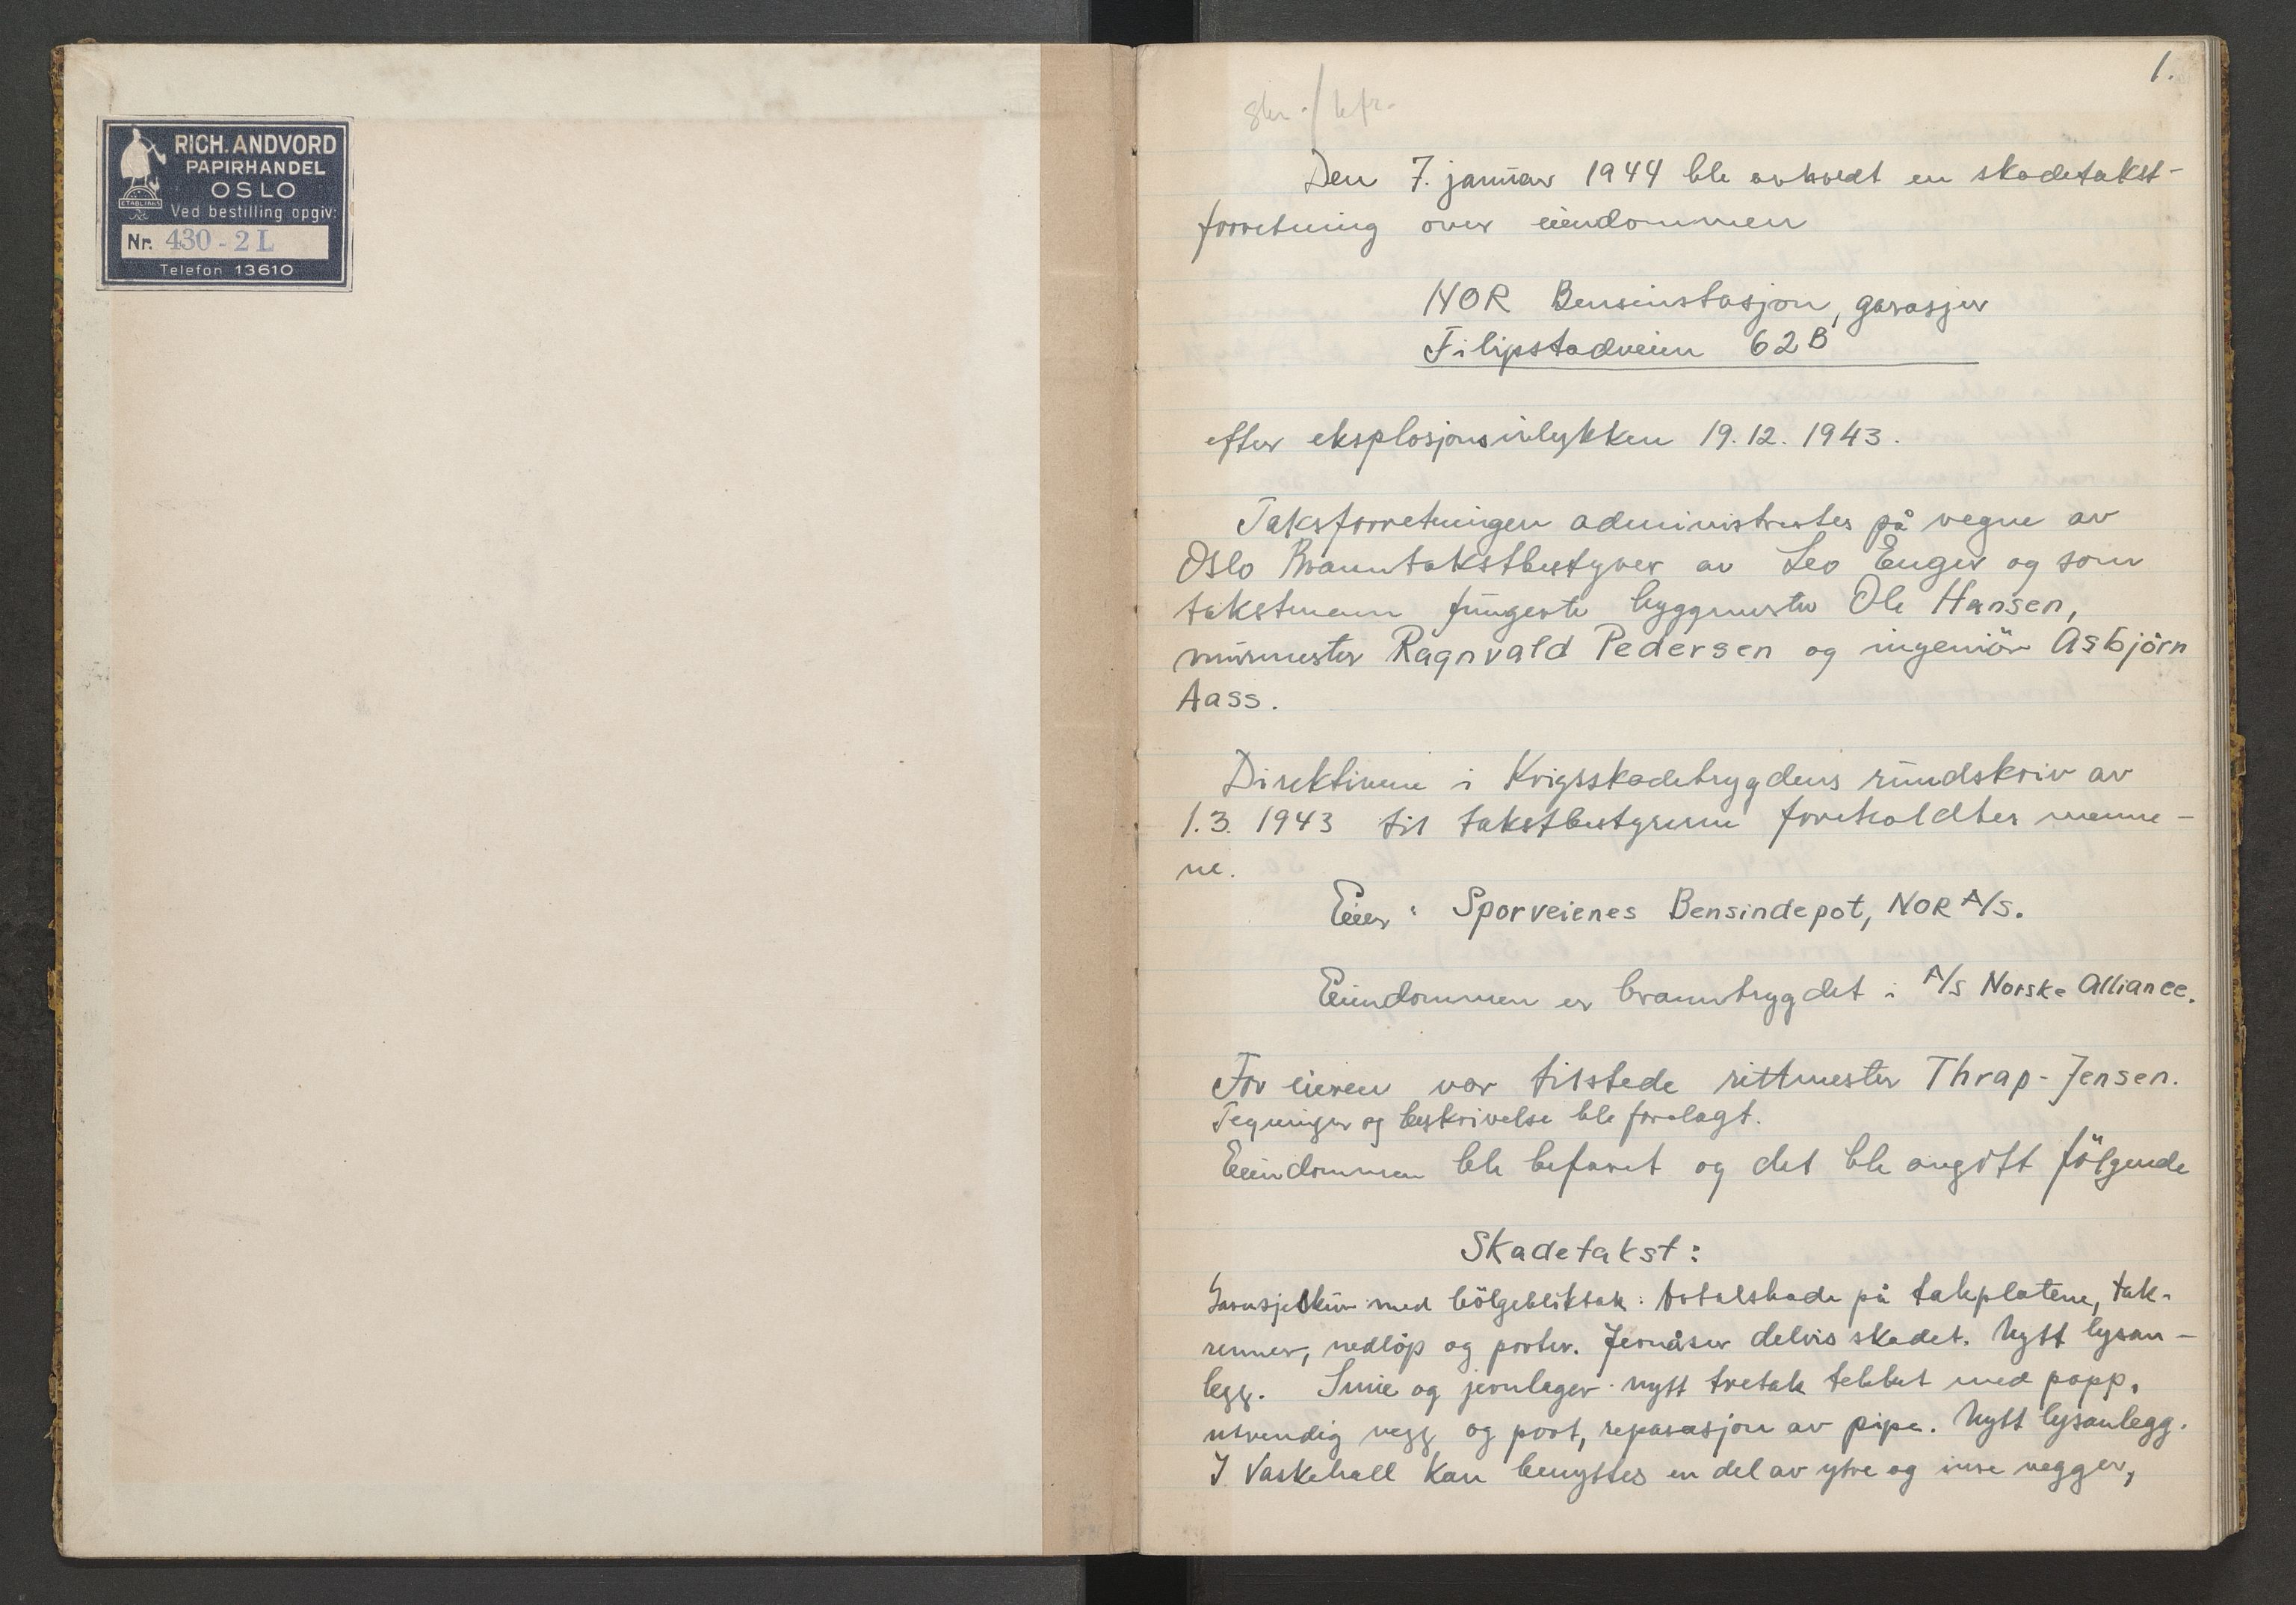 RICH. ANDVORD
PAPIRHANDEL
OSLO
ETABLERT
Ved bestilling opgiv:
Nr. 430-2L
Telefon 13610
1.
skr. / kfr.
Den 7. januar 1944 ble avholdt en skadetakst-
forretning over eiendommen
NOR Bensinstasjon, garasjer
Filipstadveien 62B
efter eksplosjonsulykken 19.12.1943.
Taksforretningen administrertes på vegne av
Oslo Branntakstbestyrer av Leo Enger og som
takstmenn fungerte byggmester Ole Hansen,
murmester Ragnvald Pedersen og ingeniör Asbjörn
Aass.
Direktivene i Krigsskadetrygdens rundskriv av
1.3. 1943 til takstbestyrerne foreholdtes menne-
ne.
Eier: Sporveienes Bensindepot, NOR A/S.
Eiendommen er branntrygdet i A/S Norske Alliance.
For eieren var tilstede rittmester Thrap-Jensen.
Tegninger og beskrivelse ble forelagt.
Eiendommen ble befaret og det ble avgitt fölgende
Skadetakst:
Garasjeskur med bölgebliktak: Totalskade på takplatene, tak-
renner, nedlöp og porter. Jernåser delvis skadet. Nytt lysan-
legg. Smie og jernlager: nytt tretak tekket med papp,
utvendig vegg og port, reparasjon av pipe. Nytt lysanlegg.
I Vaskehall kan benyttes en del av ytre og inre vegger,